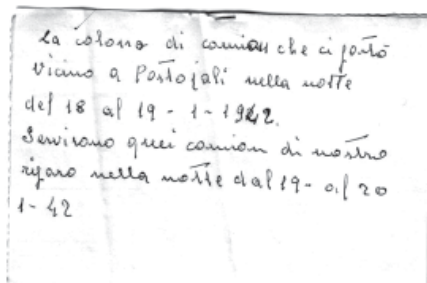 La colonna di camion che ci portò
vicino a Postojali nella notte
del 18 al 19 - 1 - 1942.
Servirono quei camion di nostro
riparo nella notte dal 19 - al 20
1 - 42